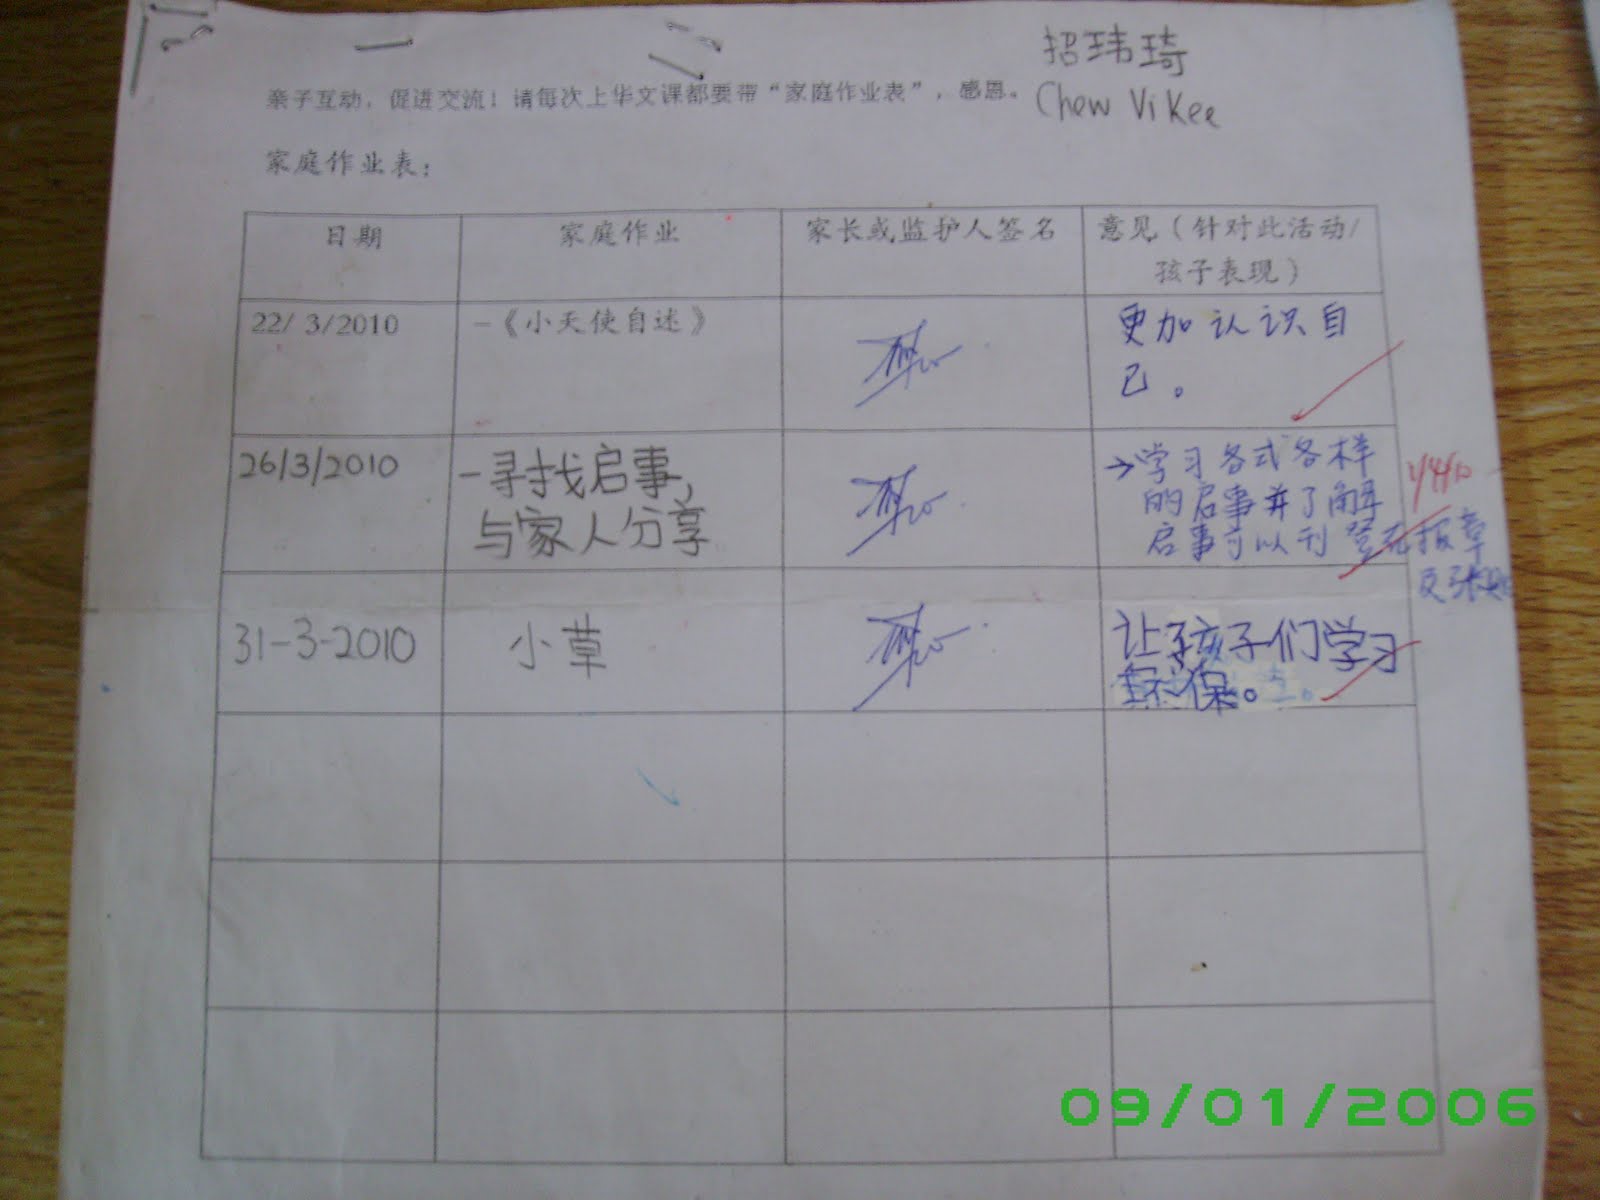 招玮琦
Chew Vi Kee
亲子互动，促进交流！请每次上华文课都要带“家庭作业表”，感恩。
家庭作业表：
日期
家庭作业
家长或监护人签名
意见（针对此活动/
孩子表现）
22/ 3/2010
-《小天使自述》
更加认识自
己。
26/3/2010
-寻找启事,
与家人分享
→学习各式各样
的启事并了解
启事可以刊登在报章
及张贴
1/4/10
31-3-2010
小草
让孩子们学习
环保。
09/01/2006